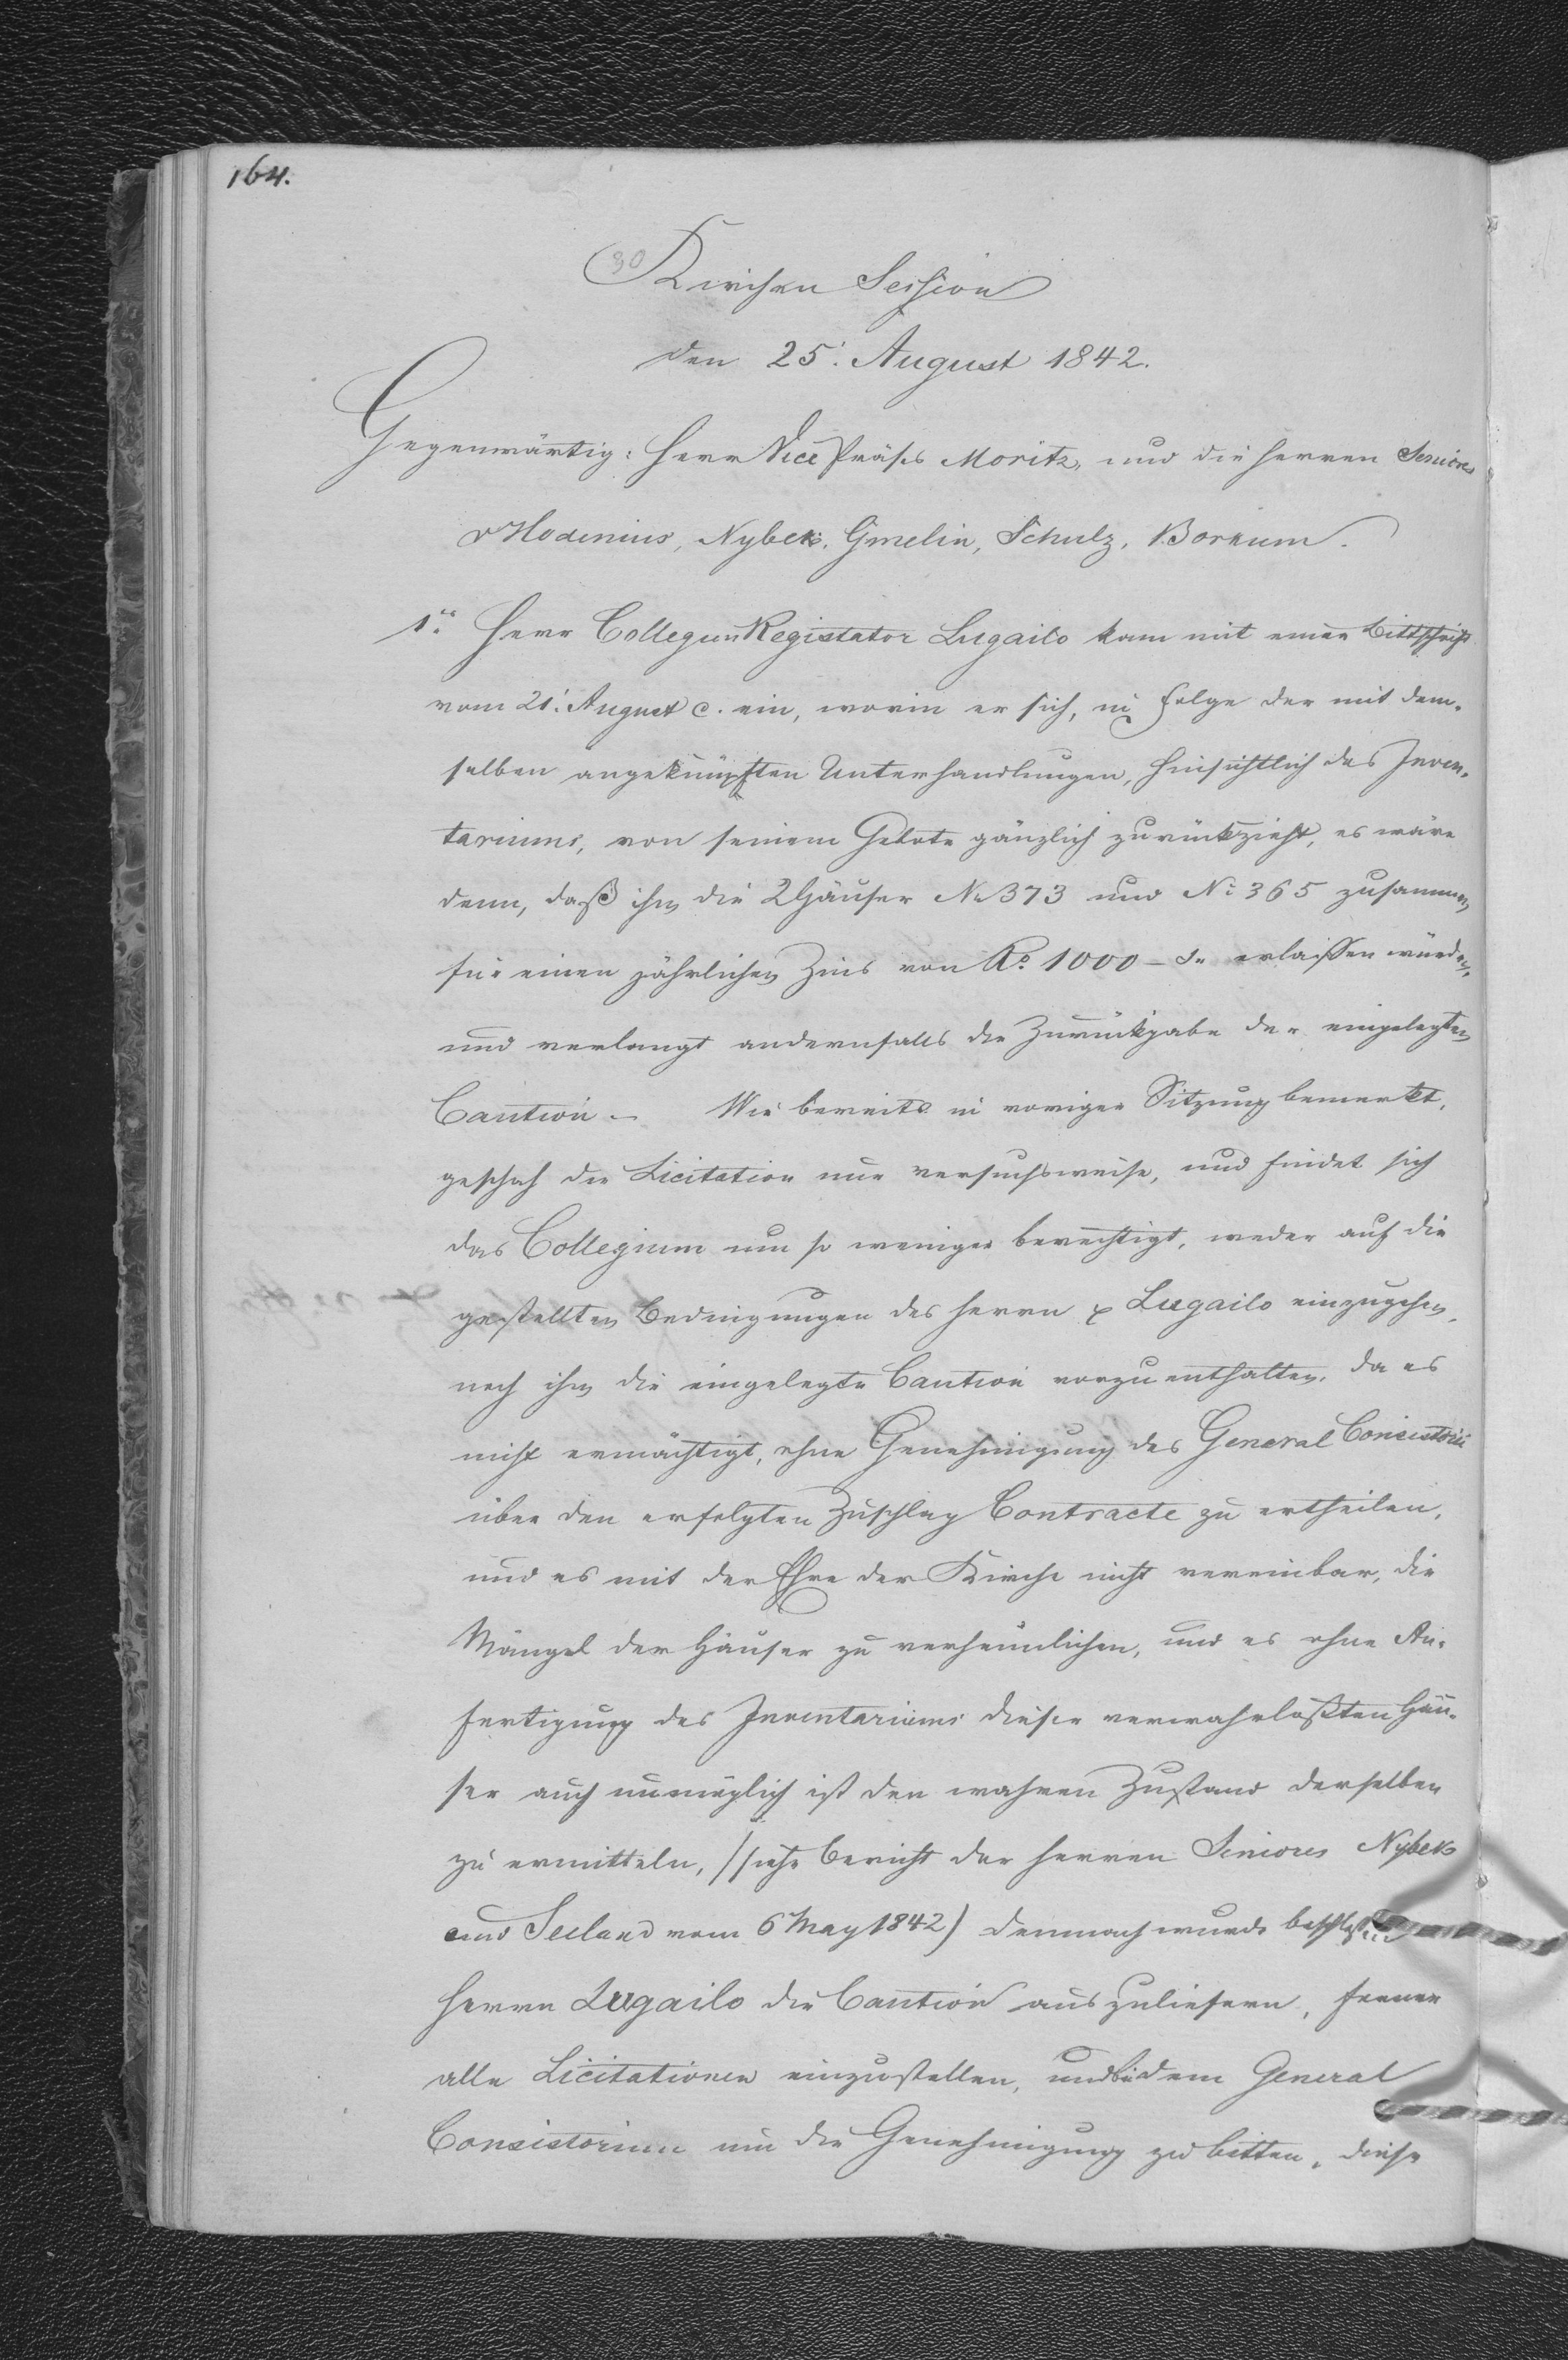 164.
30
Kirchen Session
den 25. August 1842.
Gegenwärtig: Herr Vice Präses Moritz, und die Herren Seniores
v Hodenius, Nybek, Gmelin, Schulz, Borkum.
1. Herr Collegien Registator Lugailo kam mit einer Bittschrift
vom 21. August c. ein, worin er sich, in Folge der mit dem-
selben angeknüpften Unterhandlungen, hinsichtlich des Inven-
tariums, von seinem Gebote gänzlich zurückzieht, es wäre
denn, daß ihm die 2 Häuser No 373 und No 365 zusammen
für einen jährlichen Zins von Ro. 1000 – S. erlassen würden,
und verlangt andernfalls die Zurückgabe der eingelegten
Caution. – Wie bereits in voriger Sitzung bemerkt,
geschah die Licitation nur versuchsweise, und findet sich
das Collegium um so weniger berechtigt, weder auf die
gestellten Bedingungen des Herrn Lugailo einzugehen,
noch ihm die eingelegte Caution vorzuenthalten, da es
nicht ermächtigt, ohne Genehmigung des General Consistorii
über den erfolgten Zuschlag Contracte zu ertheilen,
und es mit der Ehre der Kirche nicht vereinbar, die
Mängel der Häuser zu verheimlichen, und es ohne An-
fertigung des Inventariums dieser verwahrloßten Häu-
ser auch unmöglich ist den wahren Zustand derselben
zu ermitteln, (siehe Bericht der Herren Seniores Nybek
und Seeland vom 6 May 1842) demnach wurde beschlossen
Herrn Lugailo die Caution auszuliefern, ferner
alle Licitationen einzustellen, und bei dem General
Consistorium um die Genehmigung zu bitten, diese